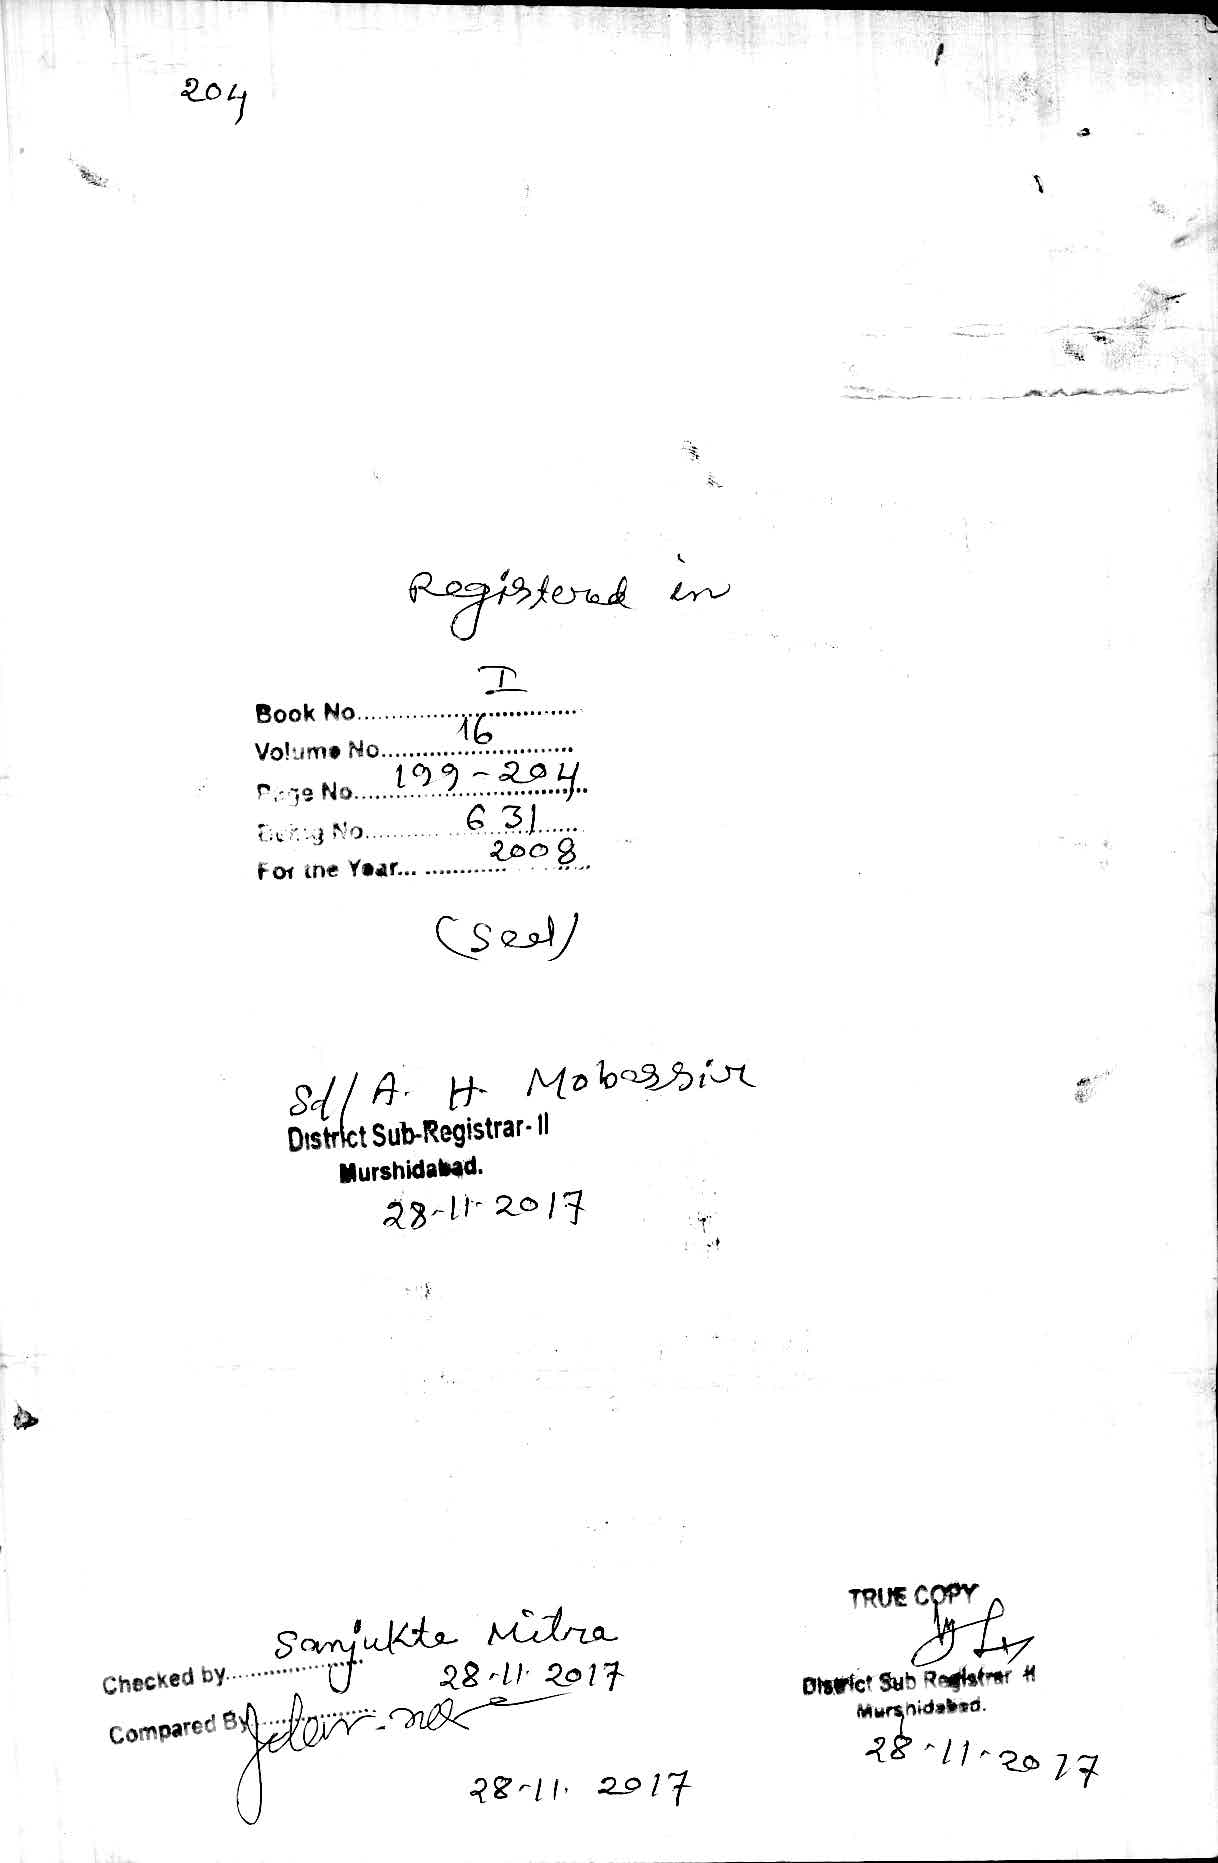 204
Registered in
Book No.......... I
Volume No.......... 16
Page No.......... 199-204
Being No.......... 631
For the Year.......... 2008
(Seal)
Sd/ A. H. Mobassir
District Sub-Registrar-II
Murshidabad.
28-11-2017
Checked by.......... Sanjukta Mitra
28-11-2017
Compared By..........
28-11-2017
TRUE COPY
District Sub Registrar II
Murshidabad.
28-11-2017